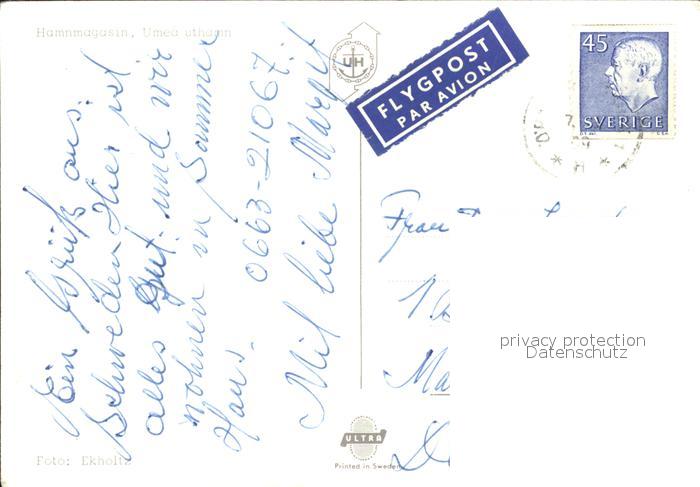 Hamnmagasin, Umea uthamn
Ein Grüß aus.
Schweden Hier ist
alles gut. und wir
wohnen in Sommer
Haus.
0663-21067.
Mit liebe Margit
UH
FLYGPOST
PAR AVION
45
SVERIGE
Frau
Ma
privacy protection
Datenschutz
ULTRA
Printed in Sweden
Foto: Ekholtz